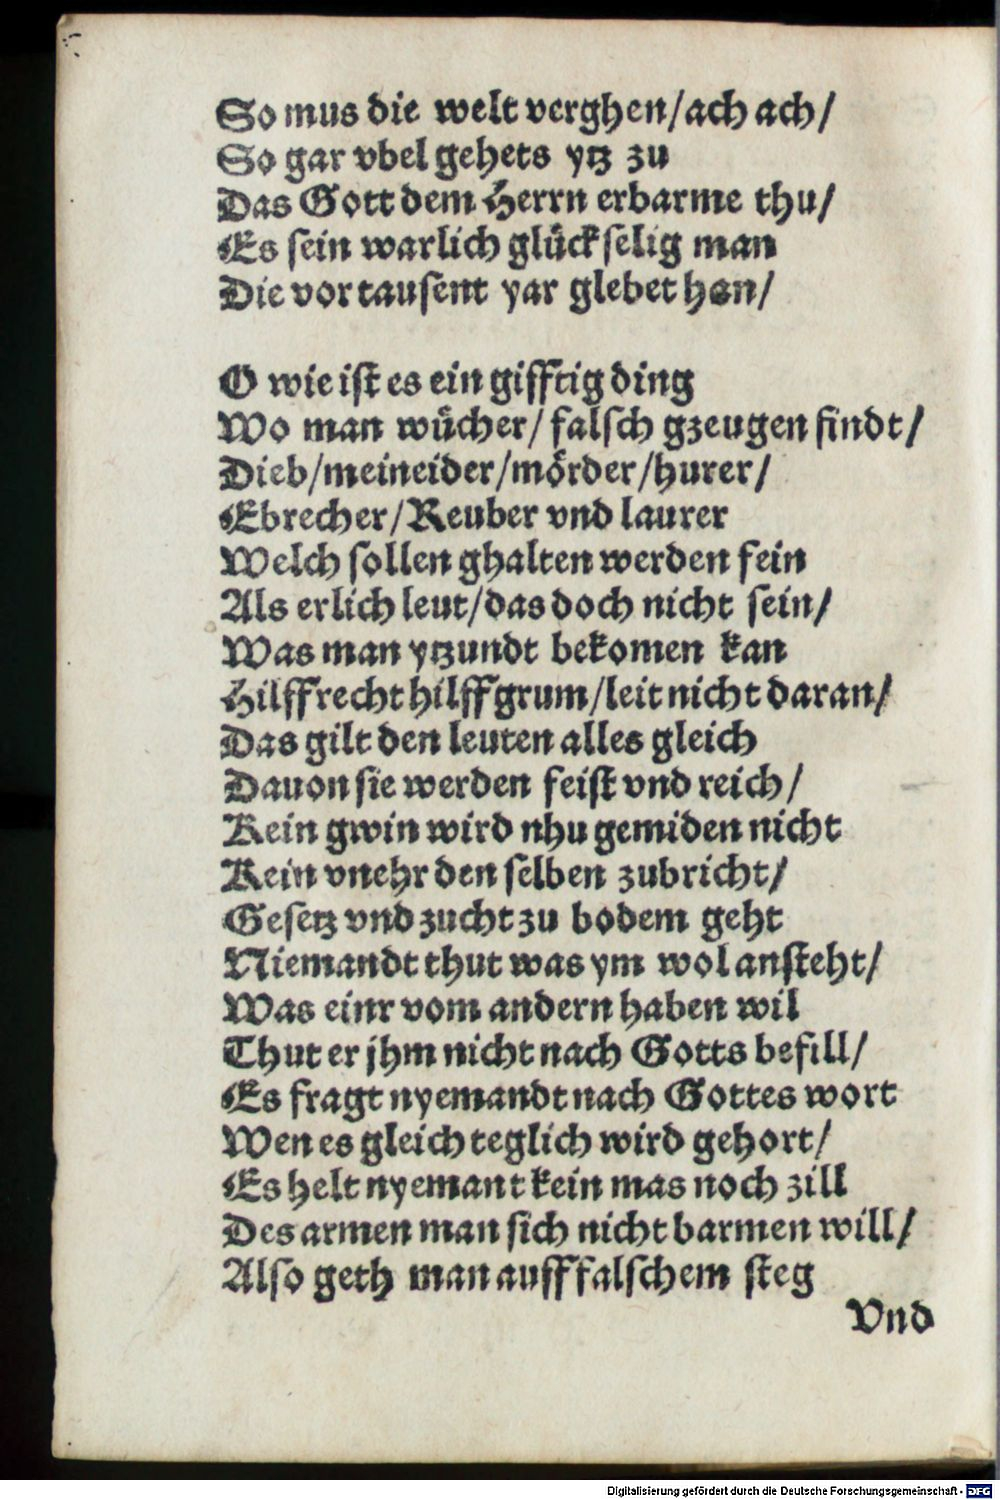 So mus die welt verghen/ach ach/
So gar vbel gehets ytz zu
Das Gott dem Herrn erbarme thu/
Es sein warlich glückselig man
Die vor tausent yar glebet han/
O wie ist es ein gifftig ding
Wo man wůcher/ falsch gzeugen findt/
Dieb/meineider/mörder/hurer/
Ebrecher/Reuber vnd laurer
Welch sollen ghalten werden fein
Als erlich leut/das doch nicht sein/
Was man ytzundt bekomen kan
Hilff recht hilff grum/leit nicht daran/
Das gilt den leuten alles gleich
Dauon sie werden feist vnd reich/
Kein gwin wird nhu gemiden nicht
Kein vnehr den selben zubricht/
Gesetz vnd zucht zu bodem geht
Niemandt thut was ym wol ansteht/
Was einr vom andern haben wil
Thut er jhm nicht nach Gotts befill/
Es fragt nyemandt nach Gottes wort
Wen es gleich teglich wird gehort/
Es helt nyemant kein mas noch zill
Des armen man sich nicht barmen will/
Also geth man auff falschem steg
Vnd
Digitalisierung gefördert durch die Deutsche Forschungsgemeinschaft - DFG